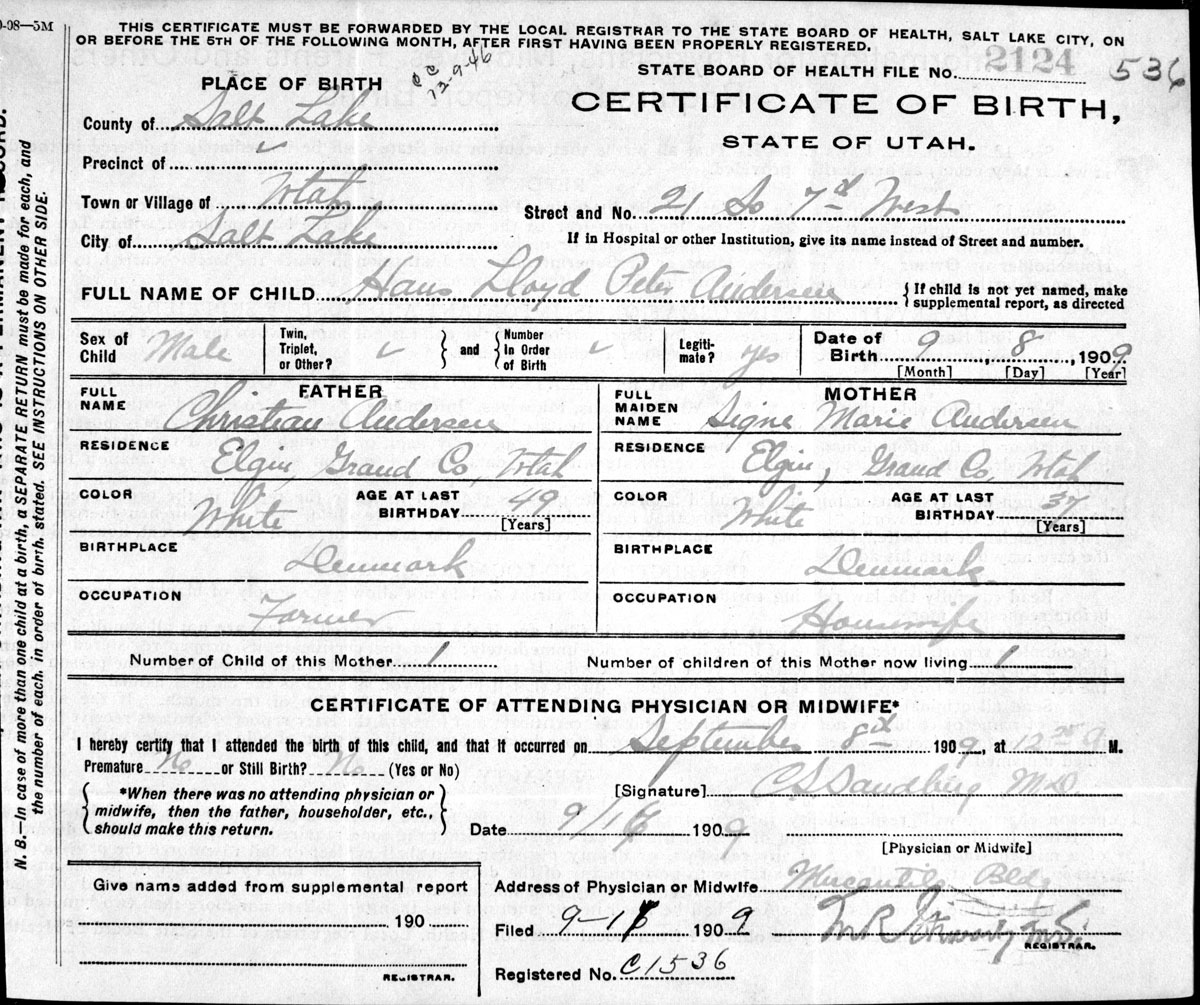 0-08—5M
THIS CERTIFICATE MUST BE FORWARDED BY THE LOCAL REGISTRAR TO THE STATE BOARD OF HEALTH, SALT LAKE CITY, ON
OR BEFORE THE 5TH OF THE FOLLOWING MONTH, AFTER FIRST HAVING BEEN PROPERLY REGISTERED.
12-9-46
STATE BOARD OF HEALTH FILE No. 2124 536
PLACE OF BIRTH
CERTIFICATE OF BIRTH,
STATE OF UTAH.
County of Salt Lake
Precinct of ✓
Town or Village of Utah
Street and No. 21 So 7th West
City of Salt Lake
If in Hospital or other Institution, give its name instead of Street and number.
FULL NAME OF CHILD Hans Lloyd Peter Andersen { If child is not yet named, make
supplemental report, as directed
Sex of Child Male
Twin, Triplet, or Other? ✓ } and { Number In Order of Birth ✓
Legiti-mate? yes
Date of Birth 9 8, 1909
[Month] [Day] [Year]
FATHER
FULL NAME Christian Andersen
RESIDENCE Elgin, Grand Co, Utah
COLOR White
AGE AT LAST BIRTHDAY 49 [Years]
BIRTHPLACE Denmark
OCCUPATION Farmer
MOTHER
FULL MAIDEN NAME Signe Marie Andersen
RESIDENCE Elgin, Grand Co, Utah
COLOR White
AGE AT LAST BIRTHDAY 37 [Years]
BIRTHPLACE Denmark
OCCUPATION Housewife
Number of Child of this Mother 1
Number of children of this Mother now living 1
CERTIFICATE OF ATTENDING PHYSICIAN OR MIDWIFE*
I hereby certify that I attended the birth of this child, and that it occurred on September 8th 1909, at 12 M.
Premature No or Still Birth? No (Yes or No)
{ *When there was no attending physician or
midwife, then the father, householder, etc.,
should make this return. }
[Signature] C S Sandberg M.D
Date 9/1 1909
[Physician or Midwife]
Give name added from supplemental report
190
REGISTRAR.
Address of Physician or Midwife Mercantile Bldg
Filed 9-1 1909
REGISTRAR.
Registered No. C1536
N. B.—In case of more than one child at a birth, a SEPARATE RETURN must be made for each, and
the number of each, in order of birth, stated. SEE INSTRUCTIONS ON OTHER SIDE.